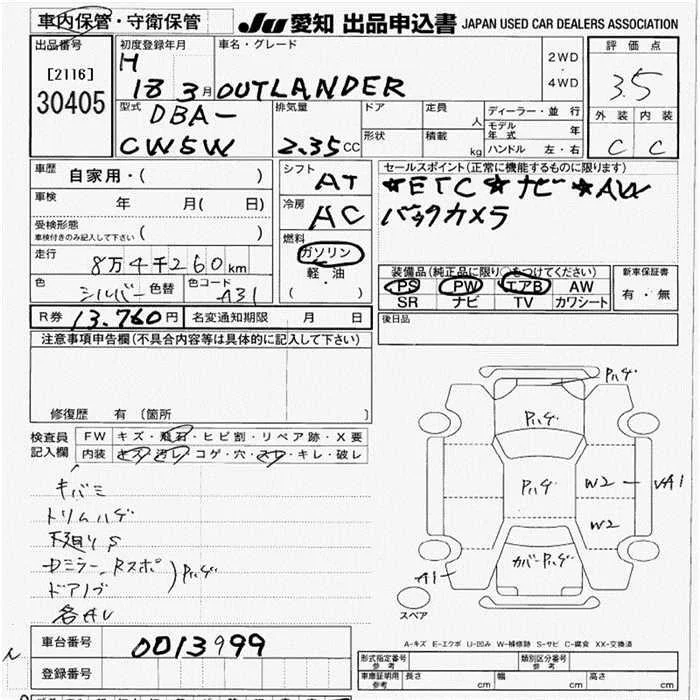 車内保管・守衛保管 JU 愛知 出品申込書 JAPAN USED CAR DEALERS ASSOCIATION
出品番号
[2116]
30405
初度登録年月
H 18 3 月
車名・グレード
OUTLANDER
2WD
・
4WD
評価点
3.5
外装 内装
C C
型式
DBA-
CW5W
排気量
2.35 CC
ドア
定員
人
形状
積載
kg
ディーラー・並行
モデル年式 年
ハンドル 左・右
車歴
自家用・( )
車検
年 月( 日)
受検形態
車検付きのみ記入して下さい ( )
走行
8万4千260km
色
シルバー 色替 色コード A31
シフト
AT
冷房
AC
燃料
ガソリン
軽・油
( )
セールスポイント(正常に機能するものに限ります)
★ETC★ナビ★AW
バックカメラ
装備品(純正品に限り○をつけてください)
PS PW エアB AW
SR ナビ TV カワシート
新車保証書
有・無
R券 13.760円 名変通知期限 月 日
後日品
注意事項申告欄(不具合内容等は具体的に記入して下さい)
修復歴 有 〔箇所 〕
検査員記入欄
FW キズ・飛石・ヒビ割・リペア跡・X要
内装 キズ・汚レ・コゲ・穴・スレ・キレ・破レ
キバミ
トリムハゲ
下廻りS
Dミラー、Rスポ
ドアノブ
Pハゲ
各AU
Pハゲ
Pハゲ
Pハゲ
W2
VA1
W2
カバーPハゲ
A1
スペア
A-キズ E-エクボ U-凹み W-補修跡 S-サビ C-腐食 XX-交換済
車台番号 0013999
登録番号
形式指定番号 参考
類別区分番号 参考
車庫証明用 参考 長さ cm 幅 cm 高さ cm